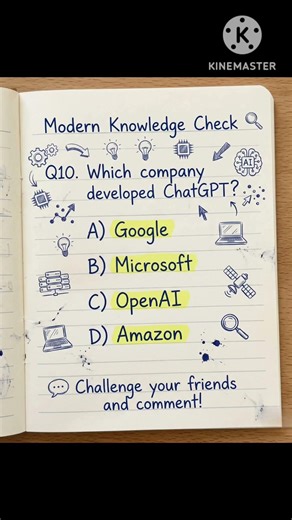 K
KINEMASTER
Modern Knowledge Check
AI
Q10. Which company
developed ChatGPT?
A) Google
B) Microsoft
C) OpenAI
D) Amazon
Challenge your friends
and comment!